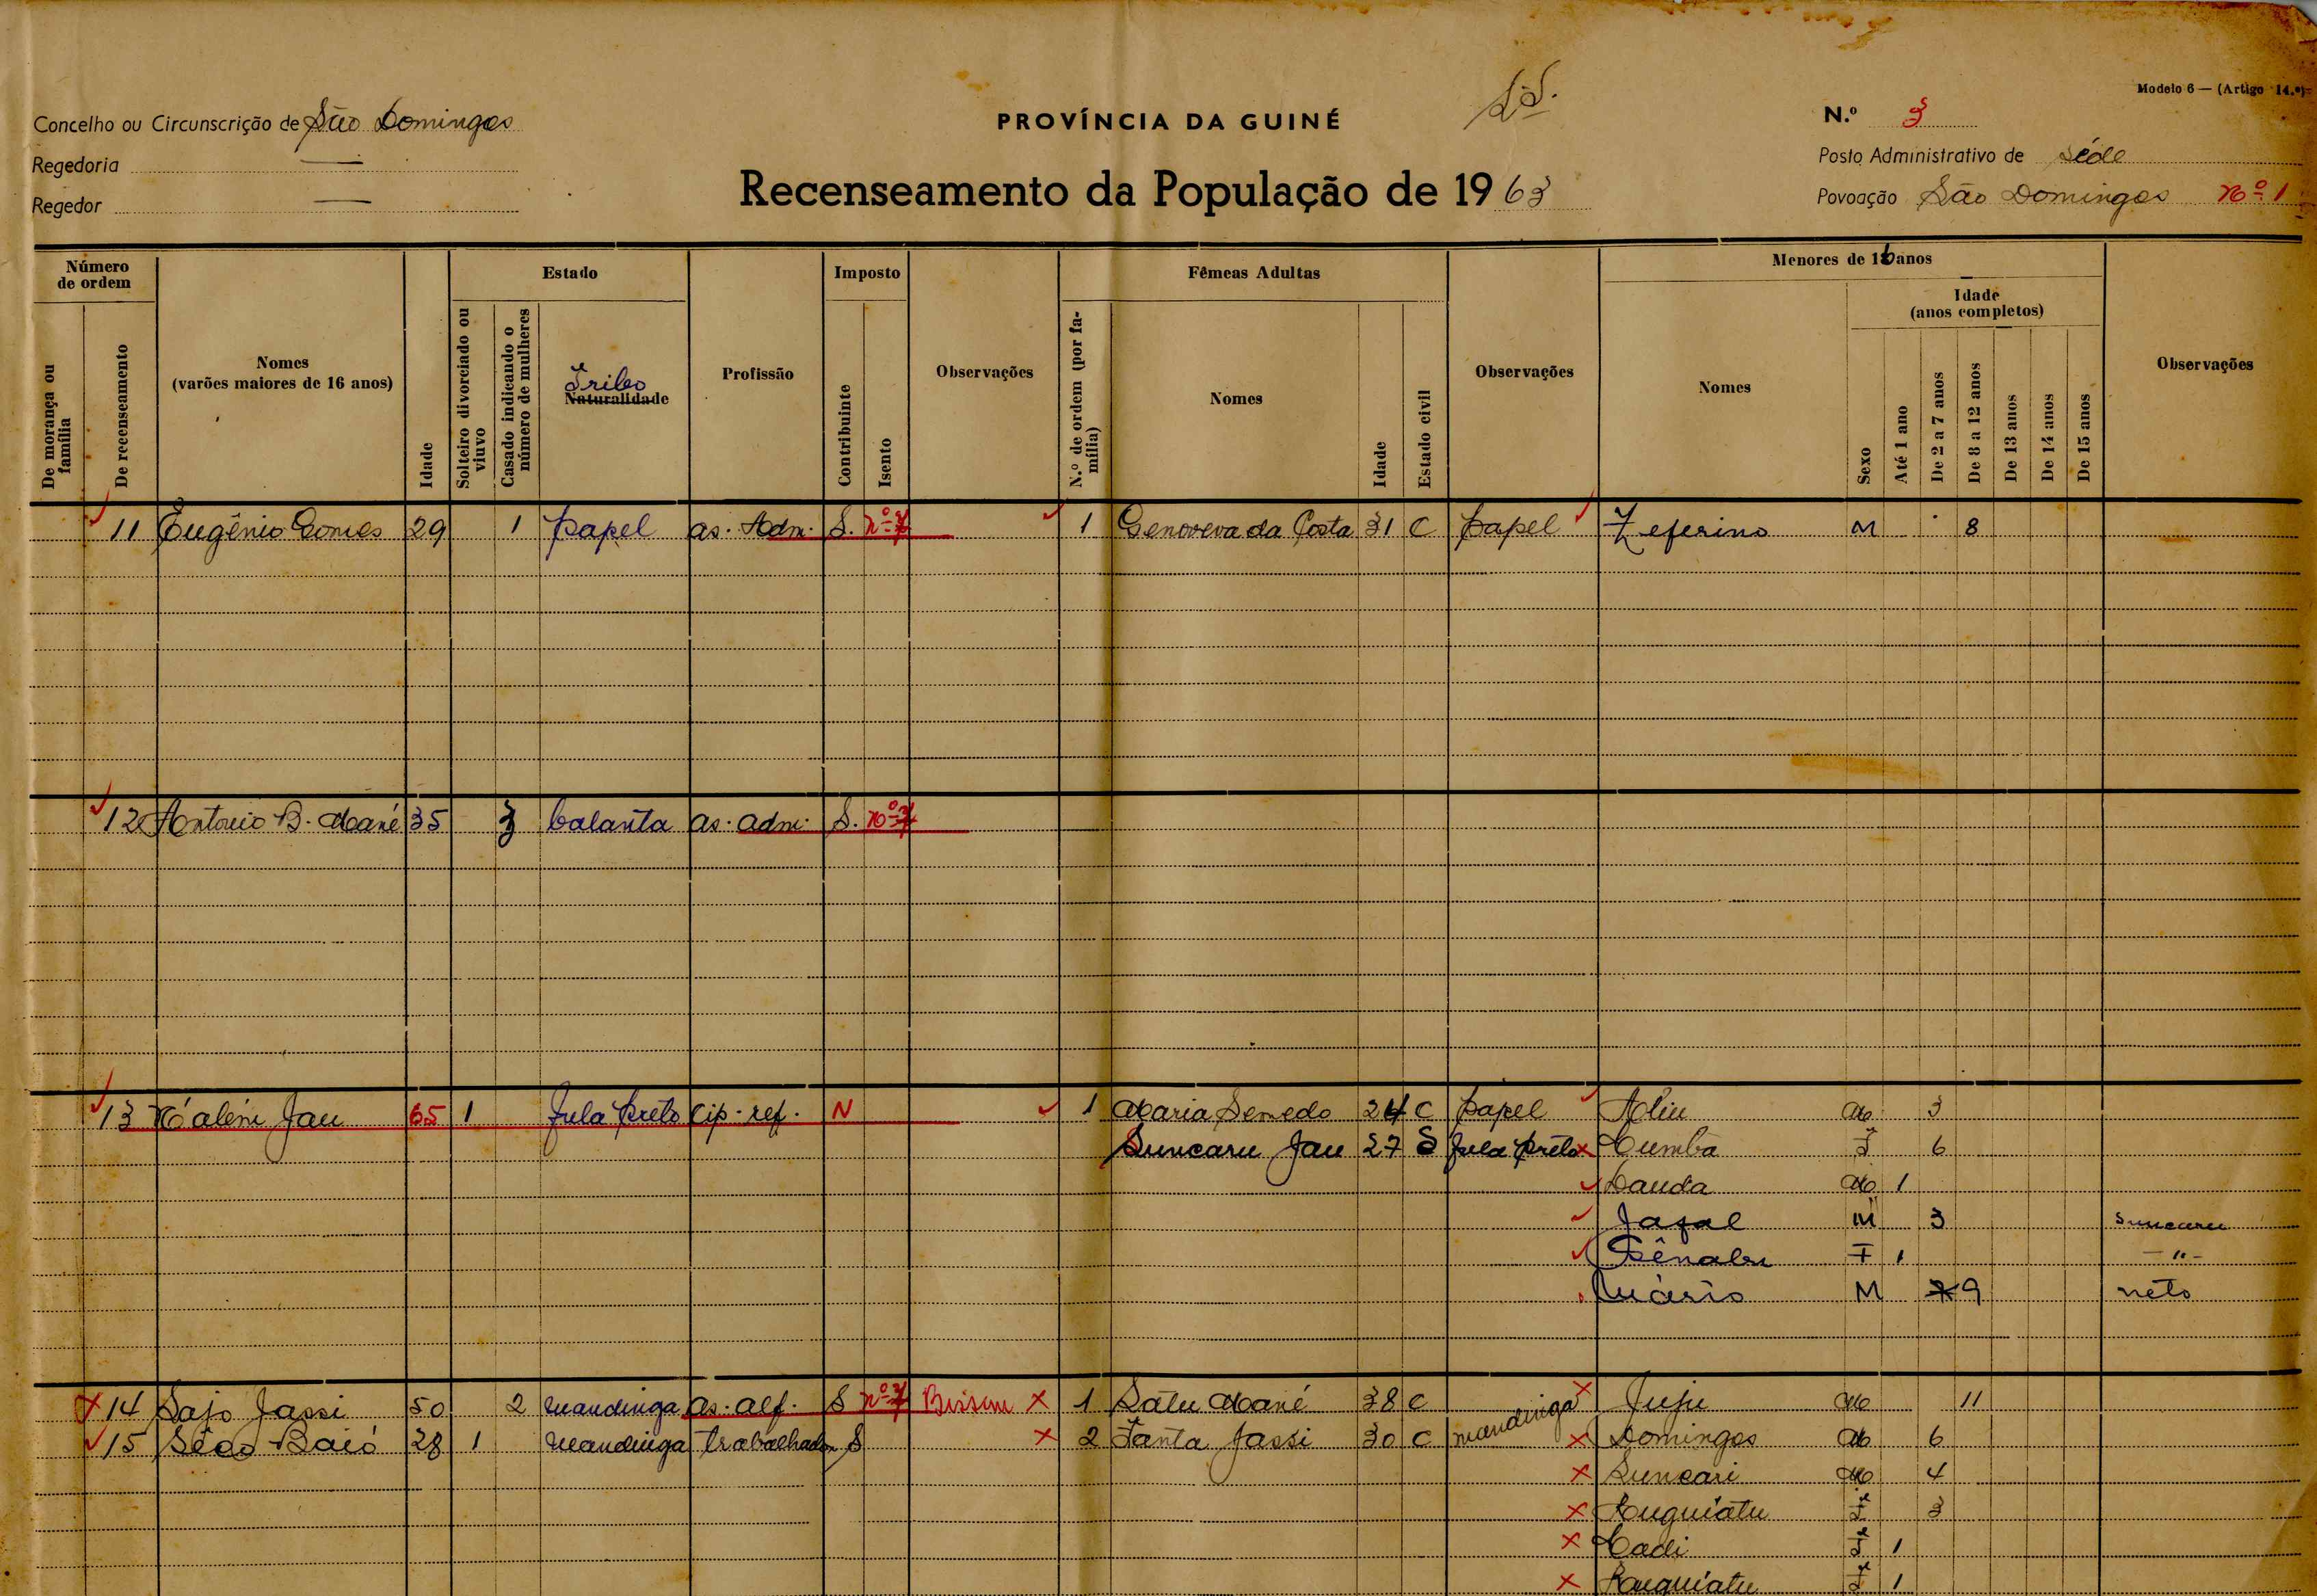 Modelo 6 — (Artigo 14.º)
Concelho ou Circunscrição de São Domingos
PROVÍNCIA DA GUINÉ
N.º 3
Regedoria —
Posto Administrativo de Séde
Regedor —
Recenseamento da População de 1963
Povoação São Domingos Nº 1
Número de ordem
De morança ou família
De recenseamento
Nomes
(varões maiores de 16 anos)
Idade
Estado
Solteiro divorciado ou viuvo
Casado indicando o número de mulheres
Tribo
Naturalidade
Profissão
Imposto
Contribuinte
Isento
Observações
Fêmeas Adultas
N.º de ordem (por família)
Nomes
Idade
Estado civil
Observações
Menores de 16 anos
Nomes
Sexo
Idade
(anos completos)
Até 1 ano
De 2 a 7 anos
De 8 a 12 anos
De 13 anos
De 14 anos
De 15 anos
Observações
11 Eugênio Gomes 29 1 papel as. Adm. S. nº 7 1 Genoveva da Costa 31 C papel Zeferino M 8
12 Antonio B. Mané 35 3 balanta as. adm. S. Nº 7
13 Malem Jau 65 1 fula preto cip. ref. N 1 Maria Semedo 24 C papel Aliu M 3
Suncaru Jau 27 S fula preto Cumba F 6
Dauda M 1
Jafal M 3 Suncaru
Sênabu F 1 — " —
Mário M 9 neto
14 Sajo Jassi 50 2 mandinga as. alf. S nº 7 Bissum 1 Satu Mané 38 C mandinga Juju M 11
15 Sêco Baió 28 1 mandinga trabalhador S 2 Fanta Jassi 30 C Domingos M 6
Suncari M 4
Ruguiatu Fe 3
Cadi Fe 1
Ruguiatu Fe 1